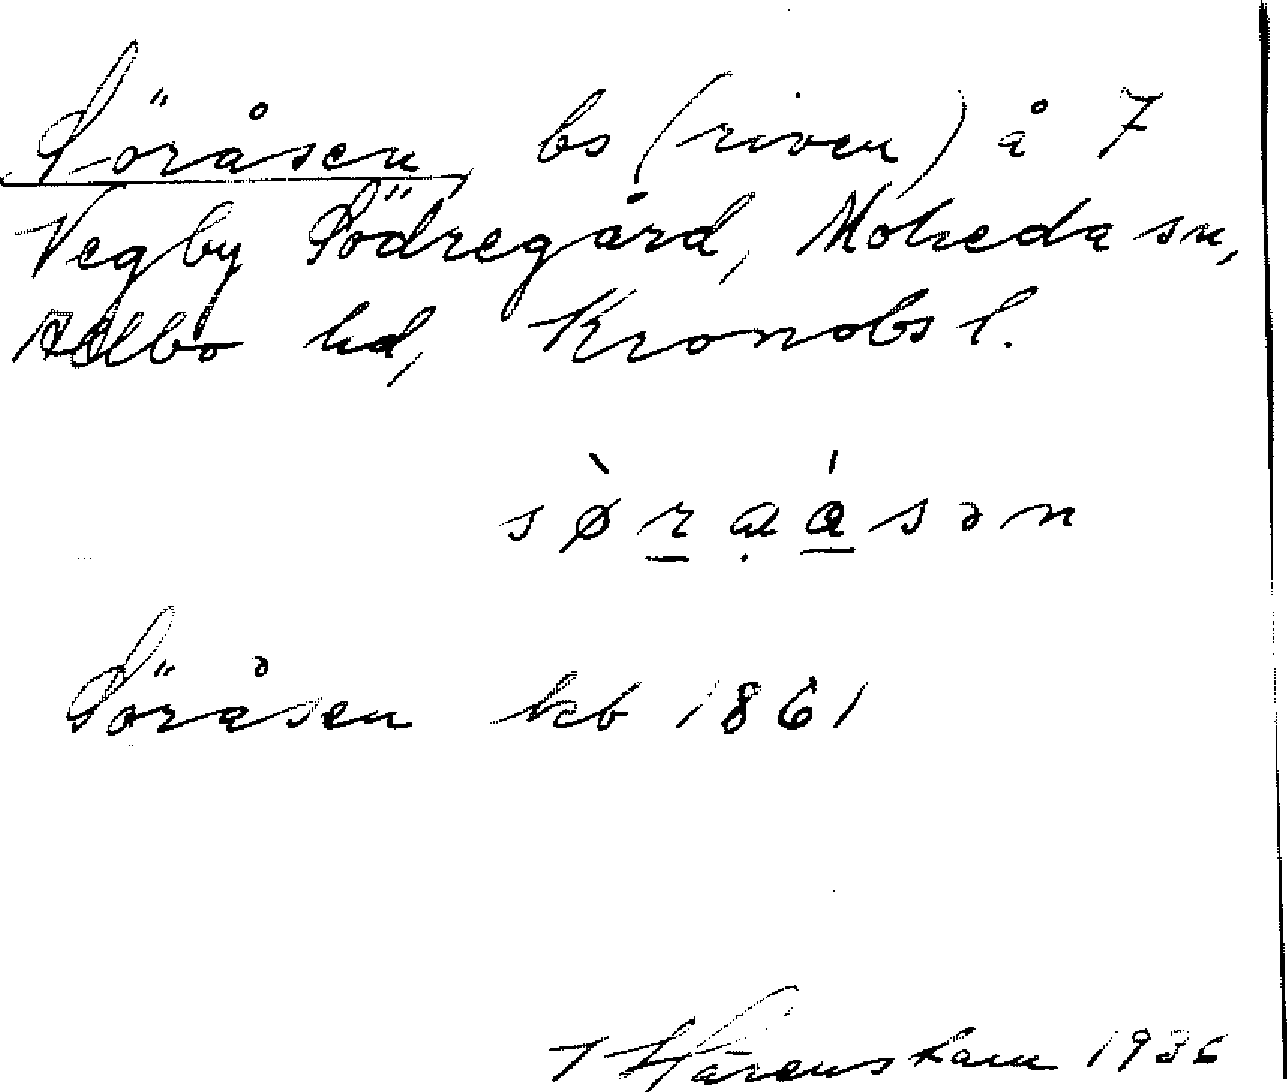 Söråsen, bs (riven) å 7
Vegby Södregård, Moheda sn,
Allbo hd, Kronobs l.
sø̀ra̱á̱sən
Söråsen kb 1861
1936